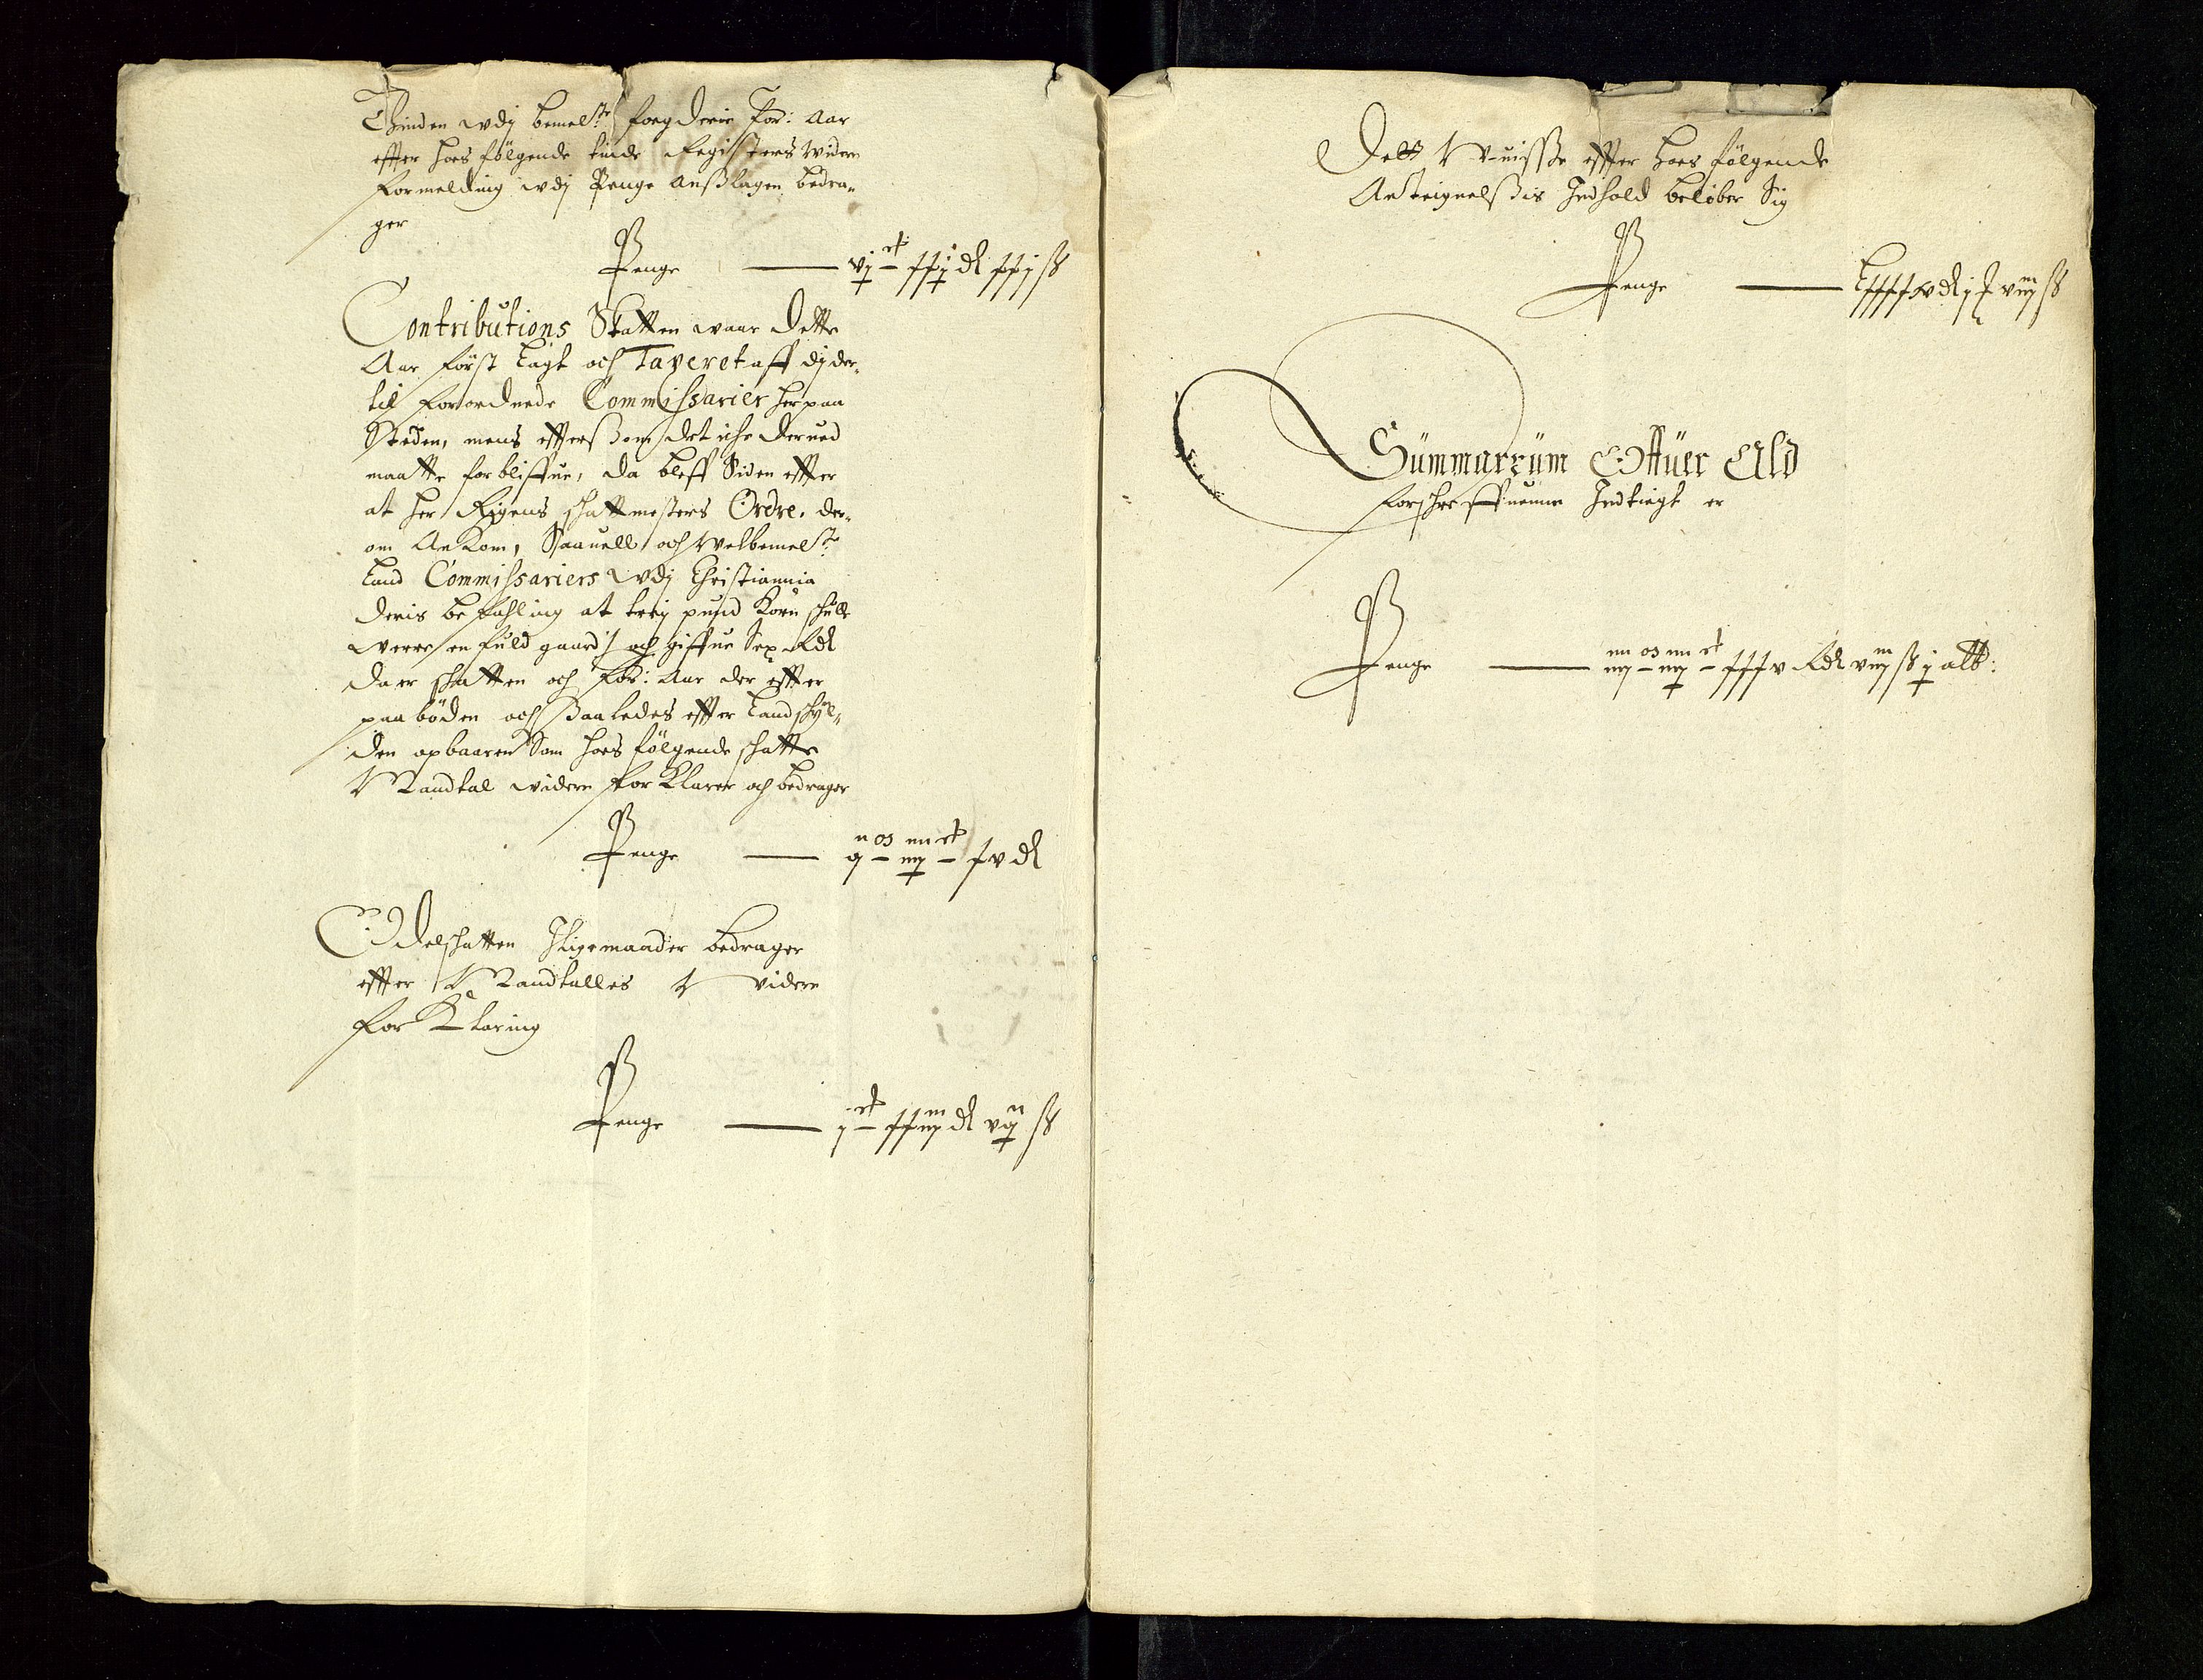 Thinden udj bemelte fogderie For: Aar
effter hoes følgende tinde Registers Widere
formelding udj Penge anßlagen, bedra-
ger
Penge — vj ct xxij dl xxj ß
Contributions Skatten waar dette
Aar først lagt och Taxeret aff dj der-
til forordnede Commissarier her paa
Steden, mens effterßom det iche derued
maatte forbliffue, da bleff Siden effter
at her Rigens schattmesters Ordre, der-
om Ankom, Saauell och Welbemelte
Land Commissariers udj Christiannia
deris befahling at trej pund Korn schulle
were en fuld gaard, och giffue Sex Rdl
daer schatten och For: Aar der effter
paabøden och ßaaledes effter Landschyl-
den opbaaren Som hoes følgende schatte
Mandtal widere forklarer och bedrager
Penge — ij os iiij ct xv dl
Odelschatten Jligemaader bedrager
effter Mandtalles videre
forklaring
Penge — j ct xxiij dl vij ß
Dett Wuisße effter hoes følgende
Anteignelßis Indhold beløber Sig
Penge — Lxxxxv dl j viij ß
Summarium Offuer Ald
forschreffuenne Indtegt er
Penge — iiij os iiij ct xxxv Rdl viij ß ij alb: